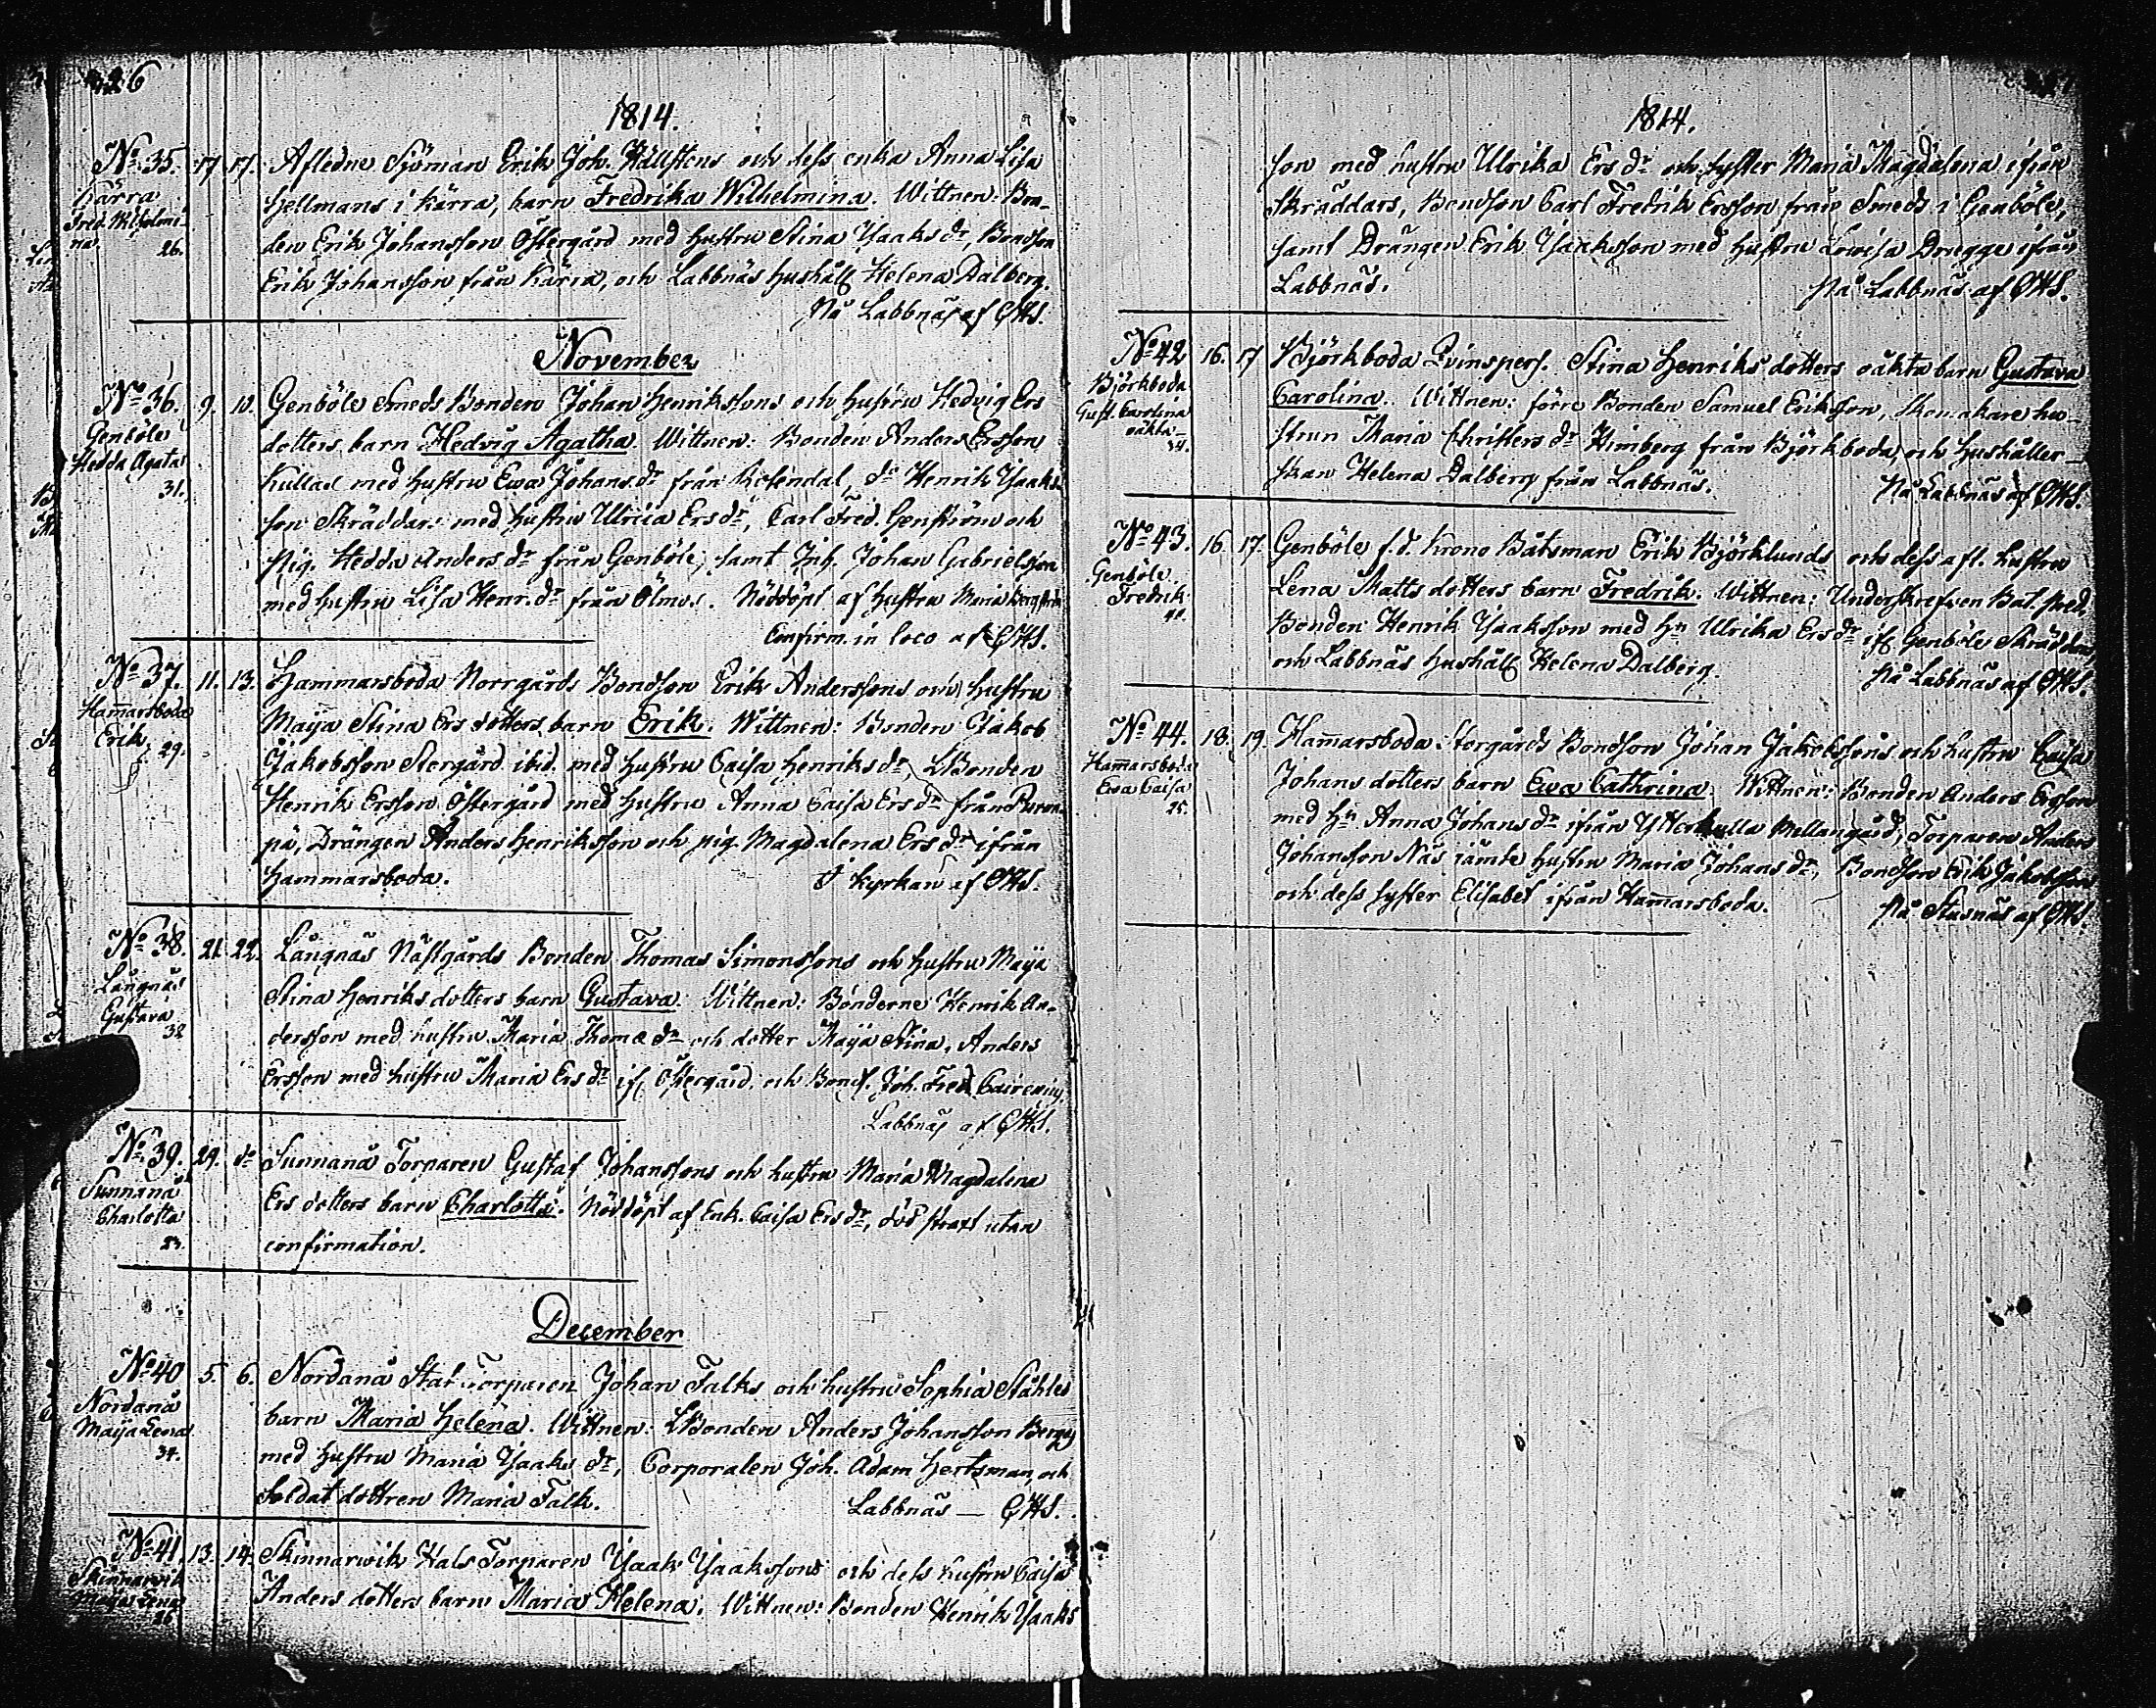 26
1814.
No 35. 17. 17. Afledne Sjöman Erik Joh. Källstens och dess enka Anna Lisa
Kärra
Fred. Wilhelmi-
na
26.
Hellmans i Kärra, barn Fredrika Wilhelmina. Wittnen: Bon-
den Erik Johansson Östergård med hustru Stina Isaks dr, Bondson
Erik Johansson från Kärra, och Labbnäs hushåll Helena Dalberg.
På Labbnäs af CHS.
November
No 36. 9. 10. Genböle Smeds Bonden Johan Henrikssons och hustru Hedvig Ers
Genböle
Hedda Agata
31.
dotters barn Hedvig Agatha. Wittnen: Bonden Anders Ersson
Kullas med hustru Ewa Johans dr från Rosendal, do Henrik Isaks-
son Skräddars med hustru Ulrica Ers dr, Carl Fred. Genström och
Pig. Hedda Anders dr från Genböle, samt Inh. Johan Gabrielsson
med hustru Lisa Henr. dr från Ölmos. Nöddöpt af hustru Maria Bergström
Confirm. in loco af CHS.
No 37. 11. 13. Hammarsboda Norrgårds Bondson Erik Anderssons och hustru
Ham̄arsboda
Erik. 29.
Maija Stina Ers dotters barn Erik. Wittnen: Bonden Jakob
Jakobsson Storgård ibid. med hustru Caisa Henriks dr, LBonden
Henrik Ersson Östergård med hustru Anna Caisa Ers dr från Puron-
pä, Drängen Anders Henriksson och pig. Magdalena Ers dr ifrån
Hammarsboda.
I kyrkan af CHS.
No 38. 21. 22. Långnäs Nästgårds Bonden Thomas Simonssons och hustru Maija
Långnäs
Gustava
32
Stina Henriks dotters barn Gustava. Wittnen: Bönderne Henrik An-
dersson med hustru Maria Thomæ dr och dotter Maija Stina, Anders
Ersson med hustru Maria Ers dr if. Östergård, och Bond. Joh. Fred.
Labbnäs af CHS.
No 39. 29. do Sunnanå Torparen Gustaf Johanssons och hustru Maria Magdalena
Sunnanå
Charlotta
23.
Ers dotters barn Charlotta. Nöddöpt af Enk. Caisa Ers dr, död straxt utan
confirmation.
December
No 40 5. 6. Nordanå Stat Torparen Johan Falks och hustru Sophia Ståhles
Nordanå
Maija Lena
34.
barn Maria Helena. Wittnen: LBonden Anders Johansson Berga
med hustru Maria Isaks dr, Corporalen Joh. Adam Hertsman, och
Soldat dottren Maria Falk.
Labbnäs — CHS.
No 41. 13. 14. Skinnarwik Hals Torparen Isaak Isaakssons och dess hustru Caisa
Skinnarvik
Maija Lena
26
Anders dotters barn Maria Helena. Wittnen: Bonden Henrik Isaaks
1814.
son med hustru Ulrika Ers dr och syster Maria Magdalena ifrån
Skräddars, Bondson Carl Fredrik Ersson från Smeds i Genböle,
samt Drängen Erik Isaaksson med hustru Lovisa Drugge ifrån
Labbnäs.
På Labbnäs af CHS.
No 42 16. 17 Björkboda Qvinspers. Stina Henriks dotters oäkta barn Gustava
Björkboda
Gust. Carolina
oäkta
34.
Carolina. Wittnen: förre Bonden Samuel Eriksson, Skomakare hu-
strun Maria Christers dr Himberg från Björkboda, och Hushåller-
skan Helena Dalberg från Labbnäs.
På Labbnäs af CHS.
No 43. 16. 17. Genböle f. d. Krono Båtsman Erik Björklunds och dess afl. hustru
Genböle
Fredrik
41.
Lena Matts dotters barn Fredrik. Wittnen: Underskrefven Bat. Pred.
Bonden Henrik Isaaksson med hu Ulrika Ers dr if. Genböle Skräddars
och Labbnäs hushåll Helena Dalberg.
På Labbnäs af CHS.
No 44. 18. 19. Ham̄arsboda Storgårds Bondson Johan Jakobssons och hustru Caisa
Ham̄arsboda
Ewa Caisa
25.
Johans dotters barn Ewa Cathrina. Wittnen: Bonden Anders Ersson
med hu Anna Johans dr ifrån Ytterkulla Mellangård, Torparen Anders
Johansson Näs jämte hustru Maria Johans dr, Bondson Erik Jakobsson
och dess syster Elisabet ifrån Ham̄arsboda.
På Stusnäs af CHS.